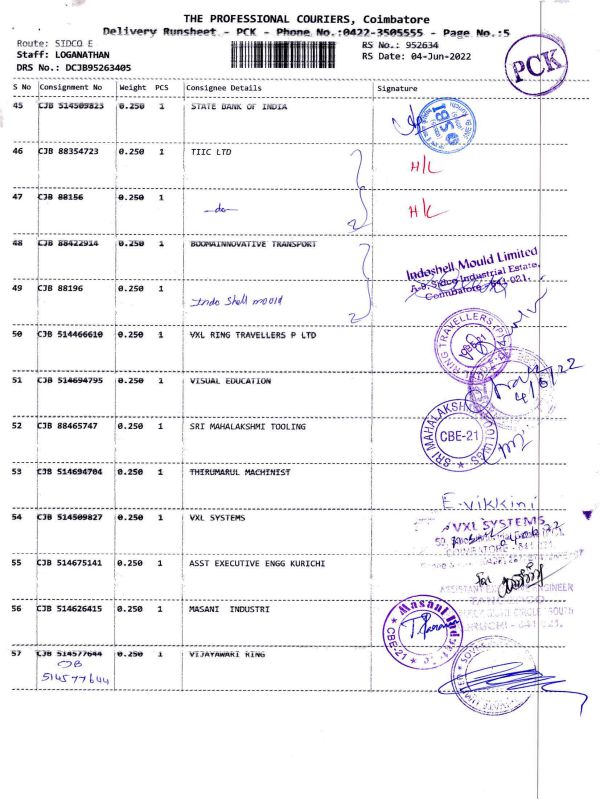 THE PROFESSIONAL COURIERS, Coimbatore
Delivery Runsheet - PCK - Phone No.:0422-3505555 - Page No.:5
Route: SIDCO E RS No.: 952634
Staff: LOGANATHAN RS Date: 04-Jun-2022
DRS No.: DCJB95263405
PCK
S No Consignment No Weight PCS Consignee Details Signature
45 CJB 514509823 0.250 1 STATE BANK OF INDIA
SBI
46 CJB 88354723 0.250 1 TIIC LTD H/L
47 CJB 88156 0.250 1 -do- H/L
48 CJB 88422914 0.250 1 BOOMAINNOVATIVE TRANSPORT
Indoshell Mould Limited
A-9, Sidco Industrial Estate,
Coimbatore - 641 021.
49 CJB 88196 0.250 1 Indo Shell mould
50 CJB 514466610 0.250 1 VXL RING TRAVELLERS P LTD
RING TRAVELLERS (P)
51 CJB 514694795 0.250 1 VISUAL EDUCATION
4/6/22
52 CJB 88465747 0.250 1 SRI MAHALAKSHMI TOOLING
SRI MAHALAKSHMI TOOLINGS
CBE-21
53 CJB 514694704 0.250 1 THIRUMARUL MACHINIST
E.vikkini
54 CJB 514509827 0.250 1 VXL SYSTEMS
VXL SYSTEMS
COIMBATORE - 641 021
55 CJB 514675141 0.250 1 ASST EXECUTIVE ENGG KURICHI
ASSISTANT ENGINEER
56 CJB 514626415 0.250 1 MASANI INDUSTRI
Masani Ind
CBE-21
57 CJB 514577644 0.250 1 VIJAYAWARI RING
CJB
514577644